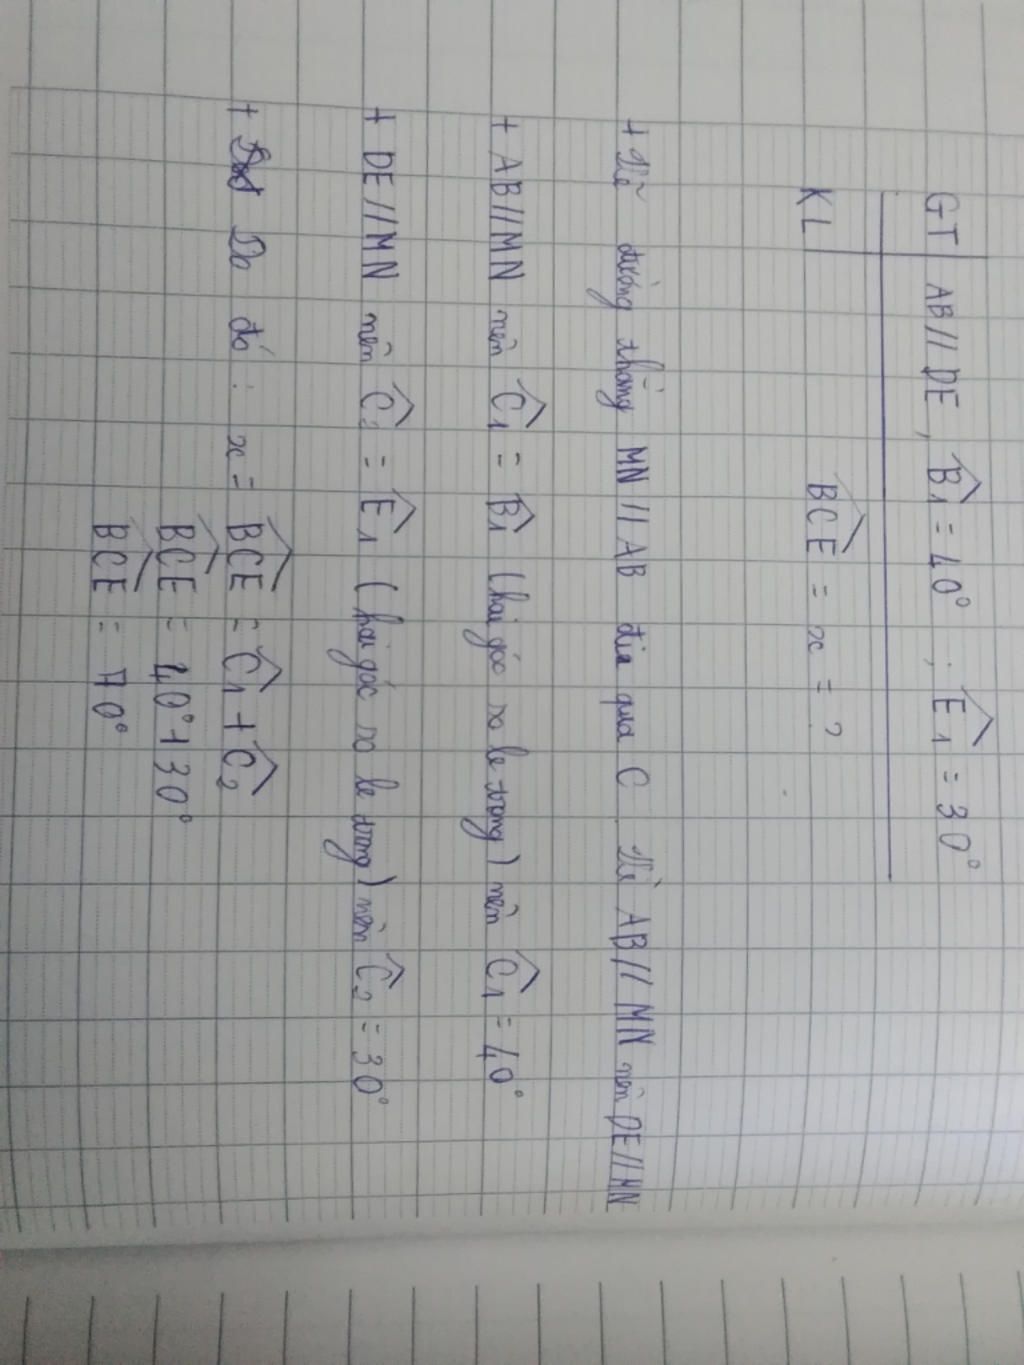 GT AB // DE, B̂₁ = 40° ; Ê₁ = 30°
KL B̂CE = x = ?
+ Vẽ đường thẳng MN // AB đia qua C. Vì AB // MN nên DE // MN
+ AB // MN nên Ĉ₁ = B̂₁ (hai góc so le trong) nên Ĉ₁ = 40°
+ DE // MN nên Ĉ₂ = Ê₁ (hai góc so le trong) nên Ĉ₂ = 30°
+ Do đó : x = B̂CE = Ĉ₁ + Ĉ₂
B̂CE = 40° + 30°
B̂CE = 70°